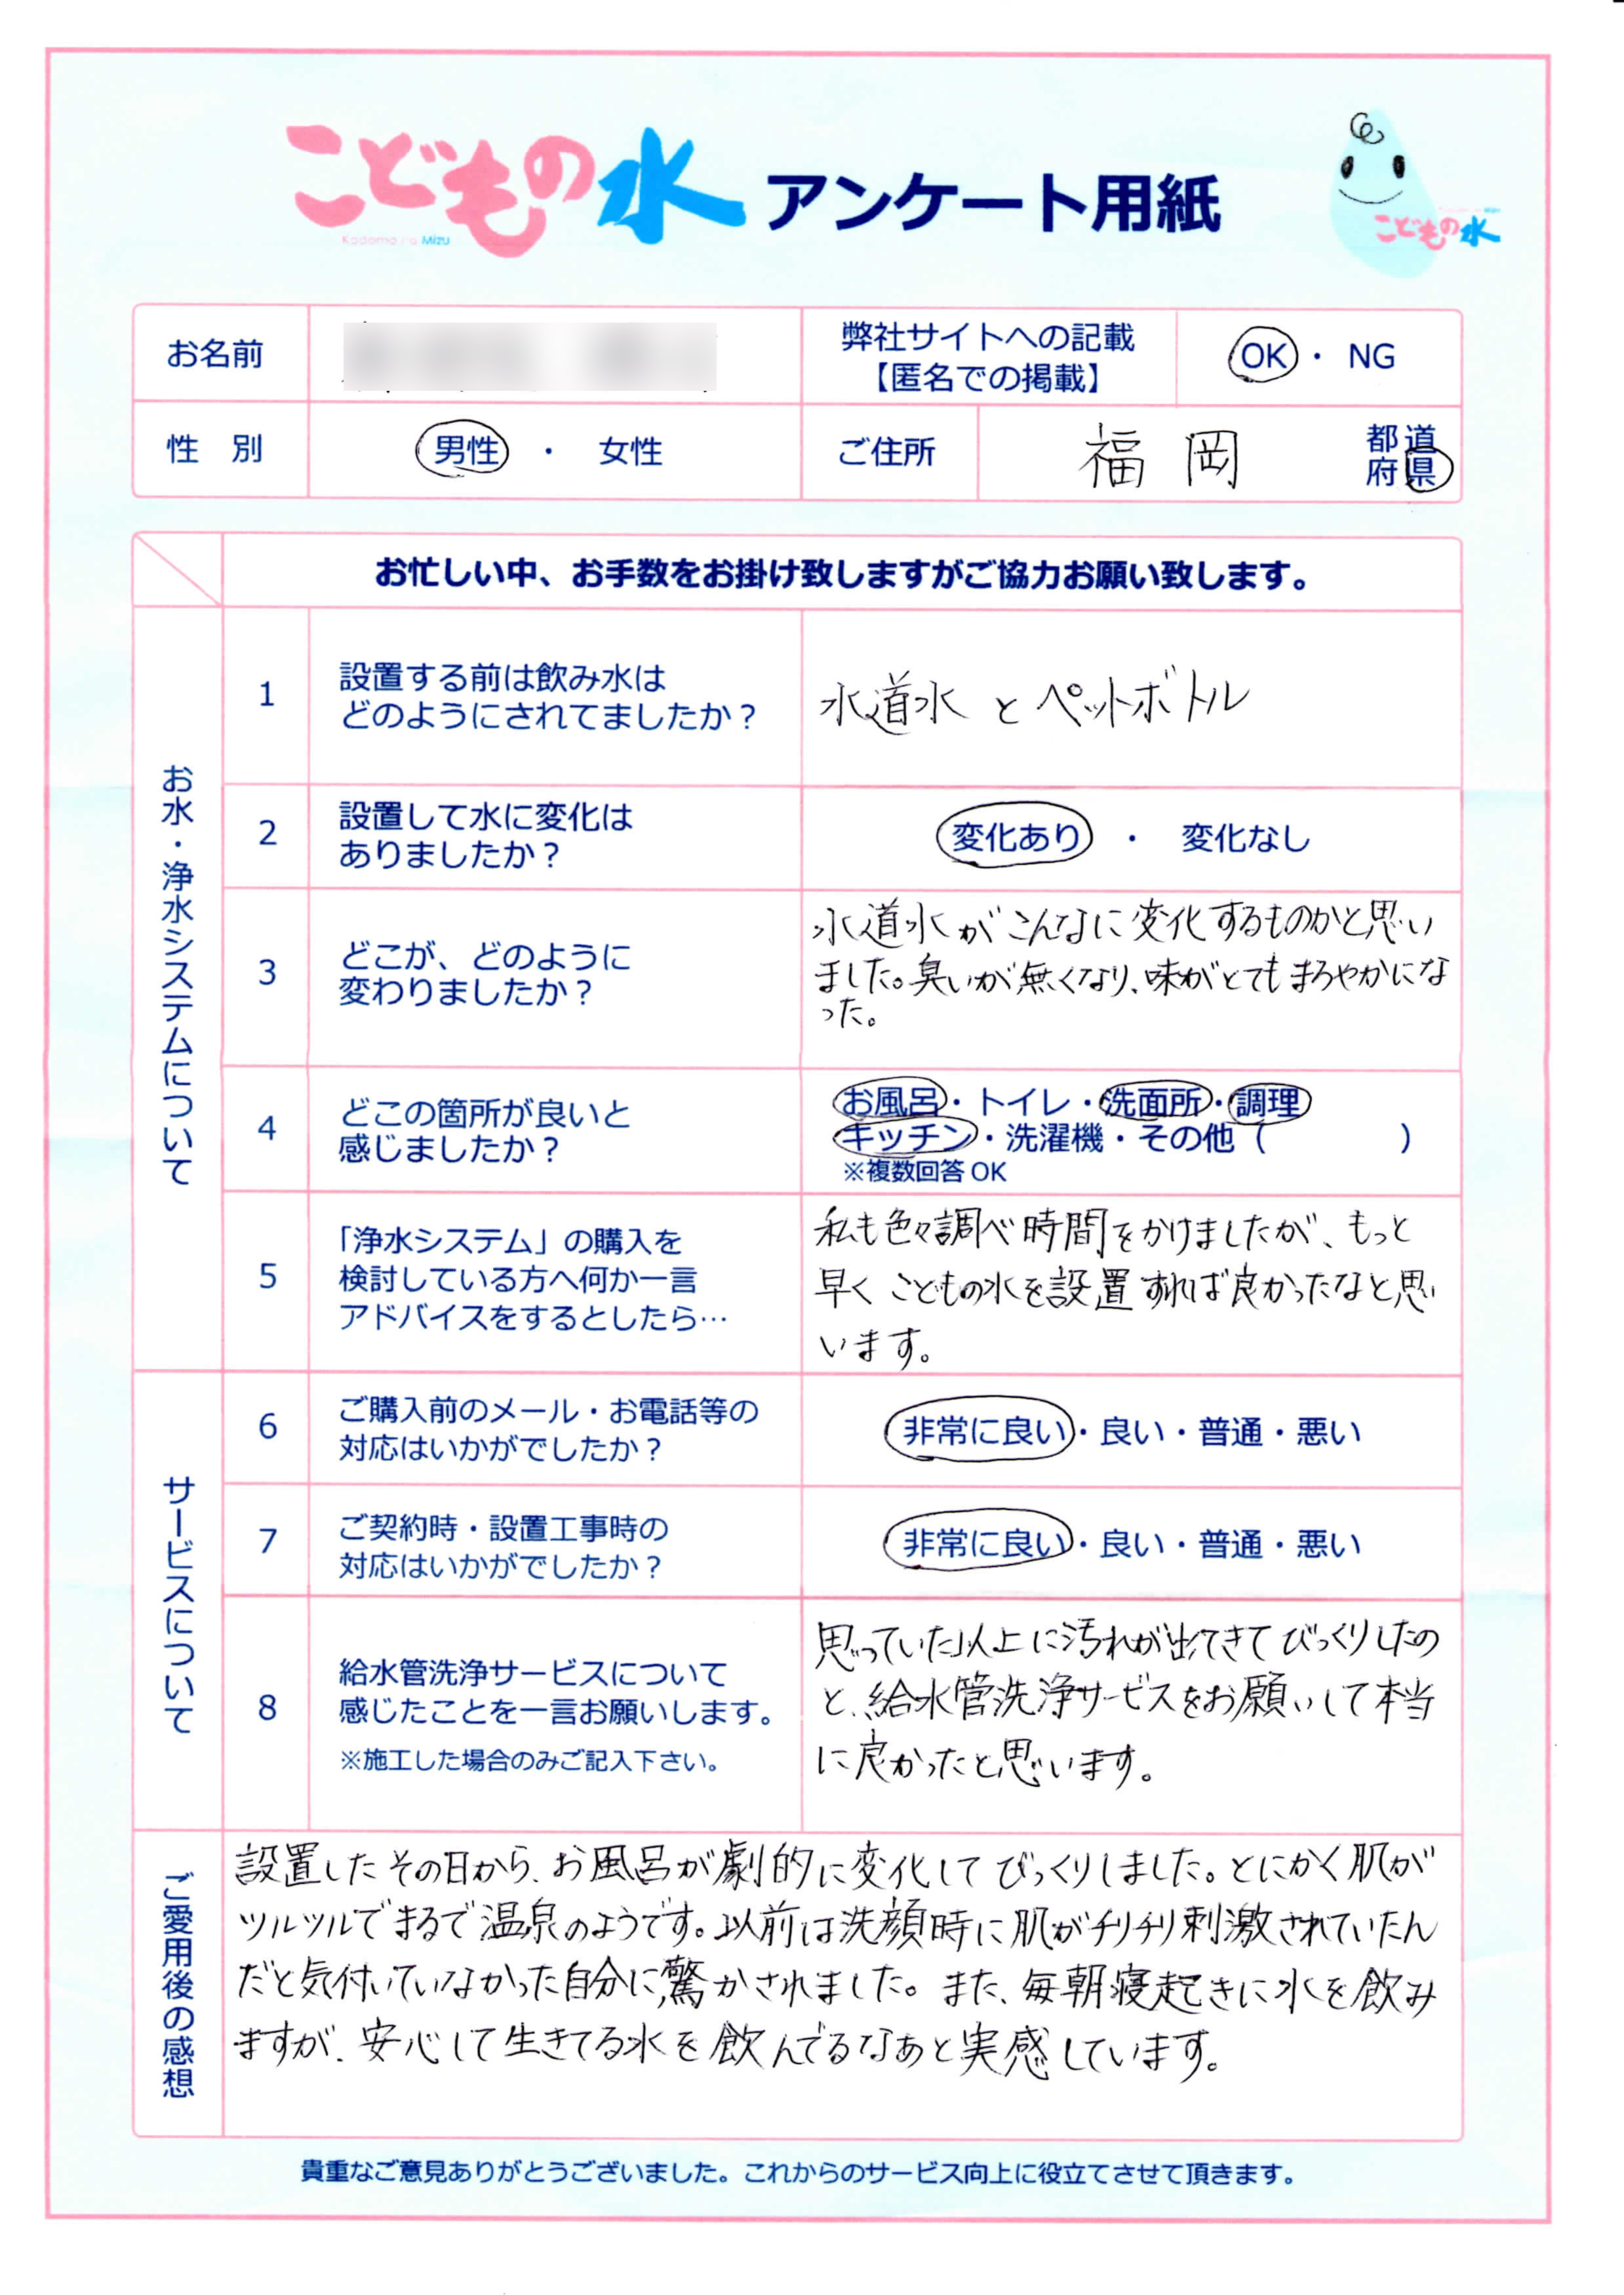 こどもの水 アンケート用紙
Kodomo no Mizu
Kodomo no Mizu
こどもの水
お名前
弊社サイトへの記載
【匿名での掲載】
OK ・ NG
性 別
男性 ・ 女性
ご住所
福岡
都道
府県
お忙しい中、お手数をお掛け致しますがご協力お願い致します。
お水・浄水システムについて
1
設置する前は飲み水は
どのようにされてましたか？
水道水とペットボトル
2
設置して水に変化は
ありましたか？
変化あり ・ 変化なし
3
どこが、どのように
変わりましたか？
水道水がこんなに変化するものかと思い
ました。臭いが無くなり、味がとてもまろやかにな
った。
4
どこの箇所が良いと
感じましたか？
お風呂・トイレ・洗面所・調理
キッチン・洗濯機・その他（ ）
※複数回答 OK
5
「浄水システム」の購入を
検討している方へ何か一言
アドバイスをするとしたら…
私も色々調べ時間をかけましたが、もっと
早くこどもの水を設置すれば良かったなと思
います。
サービスについて
6
ご購入前のメール・お電話等の
対応はいかがでしたか？
非常に良い・良い・普通・悪い
7
ご契約時・設置工事時の
対応はいかがでしたか？
非常に良い・良い・普通・悪い
8
給水管洗浄サービスについて
感じたことを一言お願いします。
※施工した場合のみご記入下さい。
思っていた以上に汚れが出てきてびっくりしたの
と、給水管洗浄サービスをお願いして本当
に良かったと思います。
ご愛用後の感想
設置したその日から、お風呂が劇的に変化してびっくりしました。とにかく肌が
ツルツルでまるで温泉のようです。以前は洗顔時に肌がチリチリ刺激されていたん
だと気付いていなかった自分に、驚かされました。また、毎朝寝起きに水を飲み
ますが、安心して生きてる水を飲んでるなぁと実感しています。
貴重なご意見ありがとうございました。これからのサービス向上に役立てさせて頂きます。